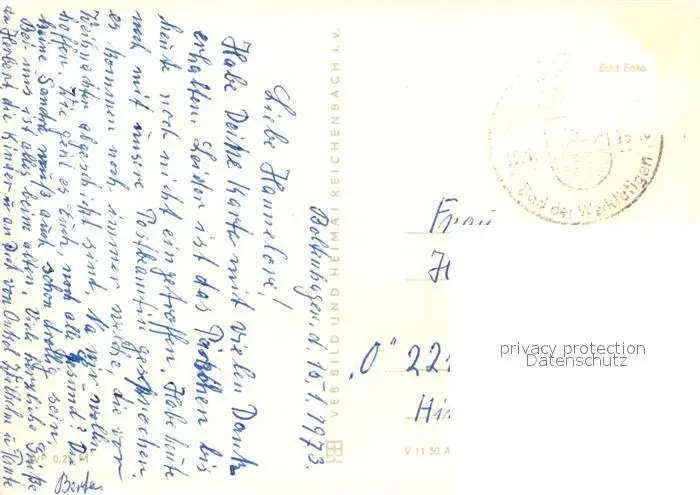 Boltenhagen, d. 15.1.1973.
Liebe Hannelore!
Habe Deine Karte mit vielen Dank
erhalten. Leider ist das Päckchen bis
heute noch nicht eingetroffen. Habe heute
noch mit unsere Postbeamtin gesprochen.
es kommen noch immer welche, die vor
Weihnachten abgeschickt sind. Na wir wollen
hoffen. Wie geht es Euch, noch alle gesund? Die
kleine Sandra muß auch schon drollig sein.
Bei uns ist alles beim alten. Viele herzliche Grüße
an Herbert die Kinder u. an Dich von Onkel Wilhelm u. Tante
Berta
VEB BILD UND HEIMAT REICHENBACH I. V.
0,25 M
V 11 50 A
Echt Foto
Bad der Werktätigen
Frau
H
„O" 22
Hi
privacy protection
Datenschutz